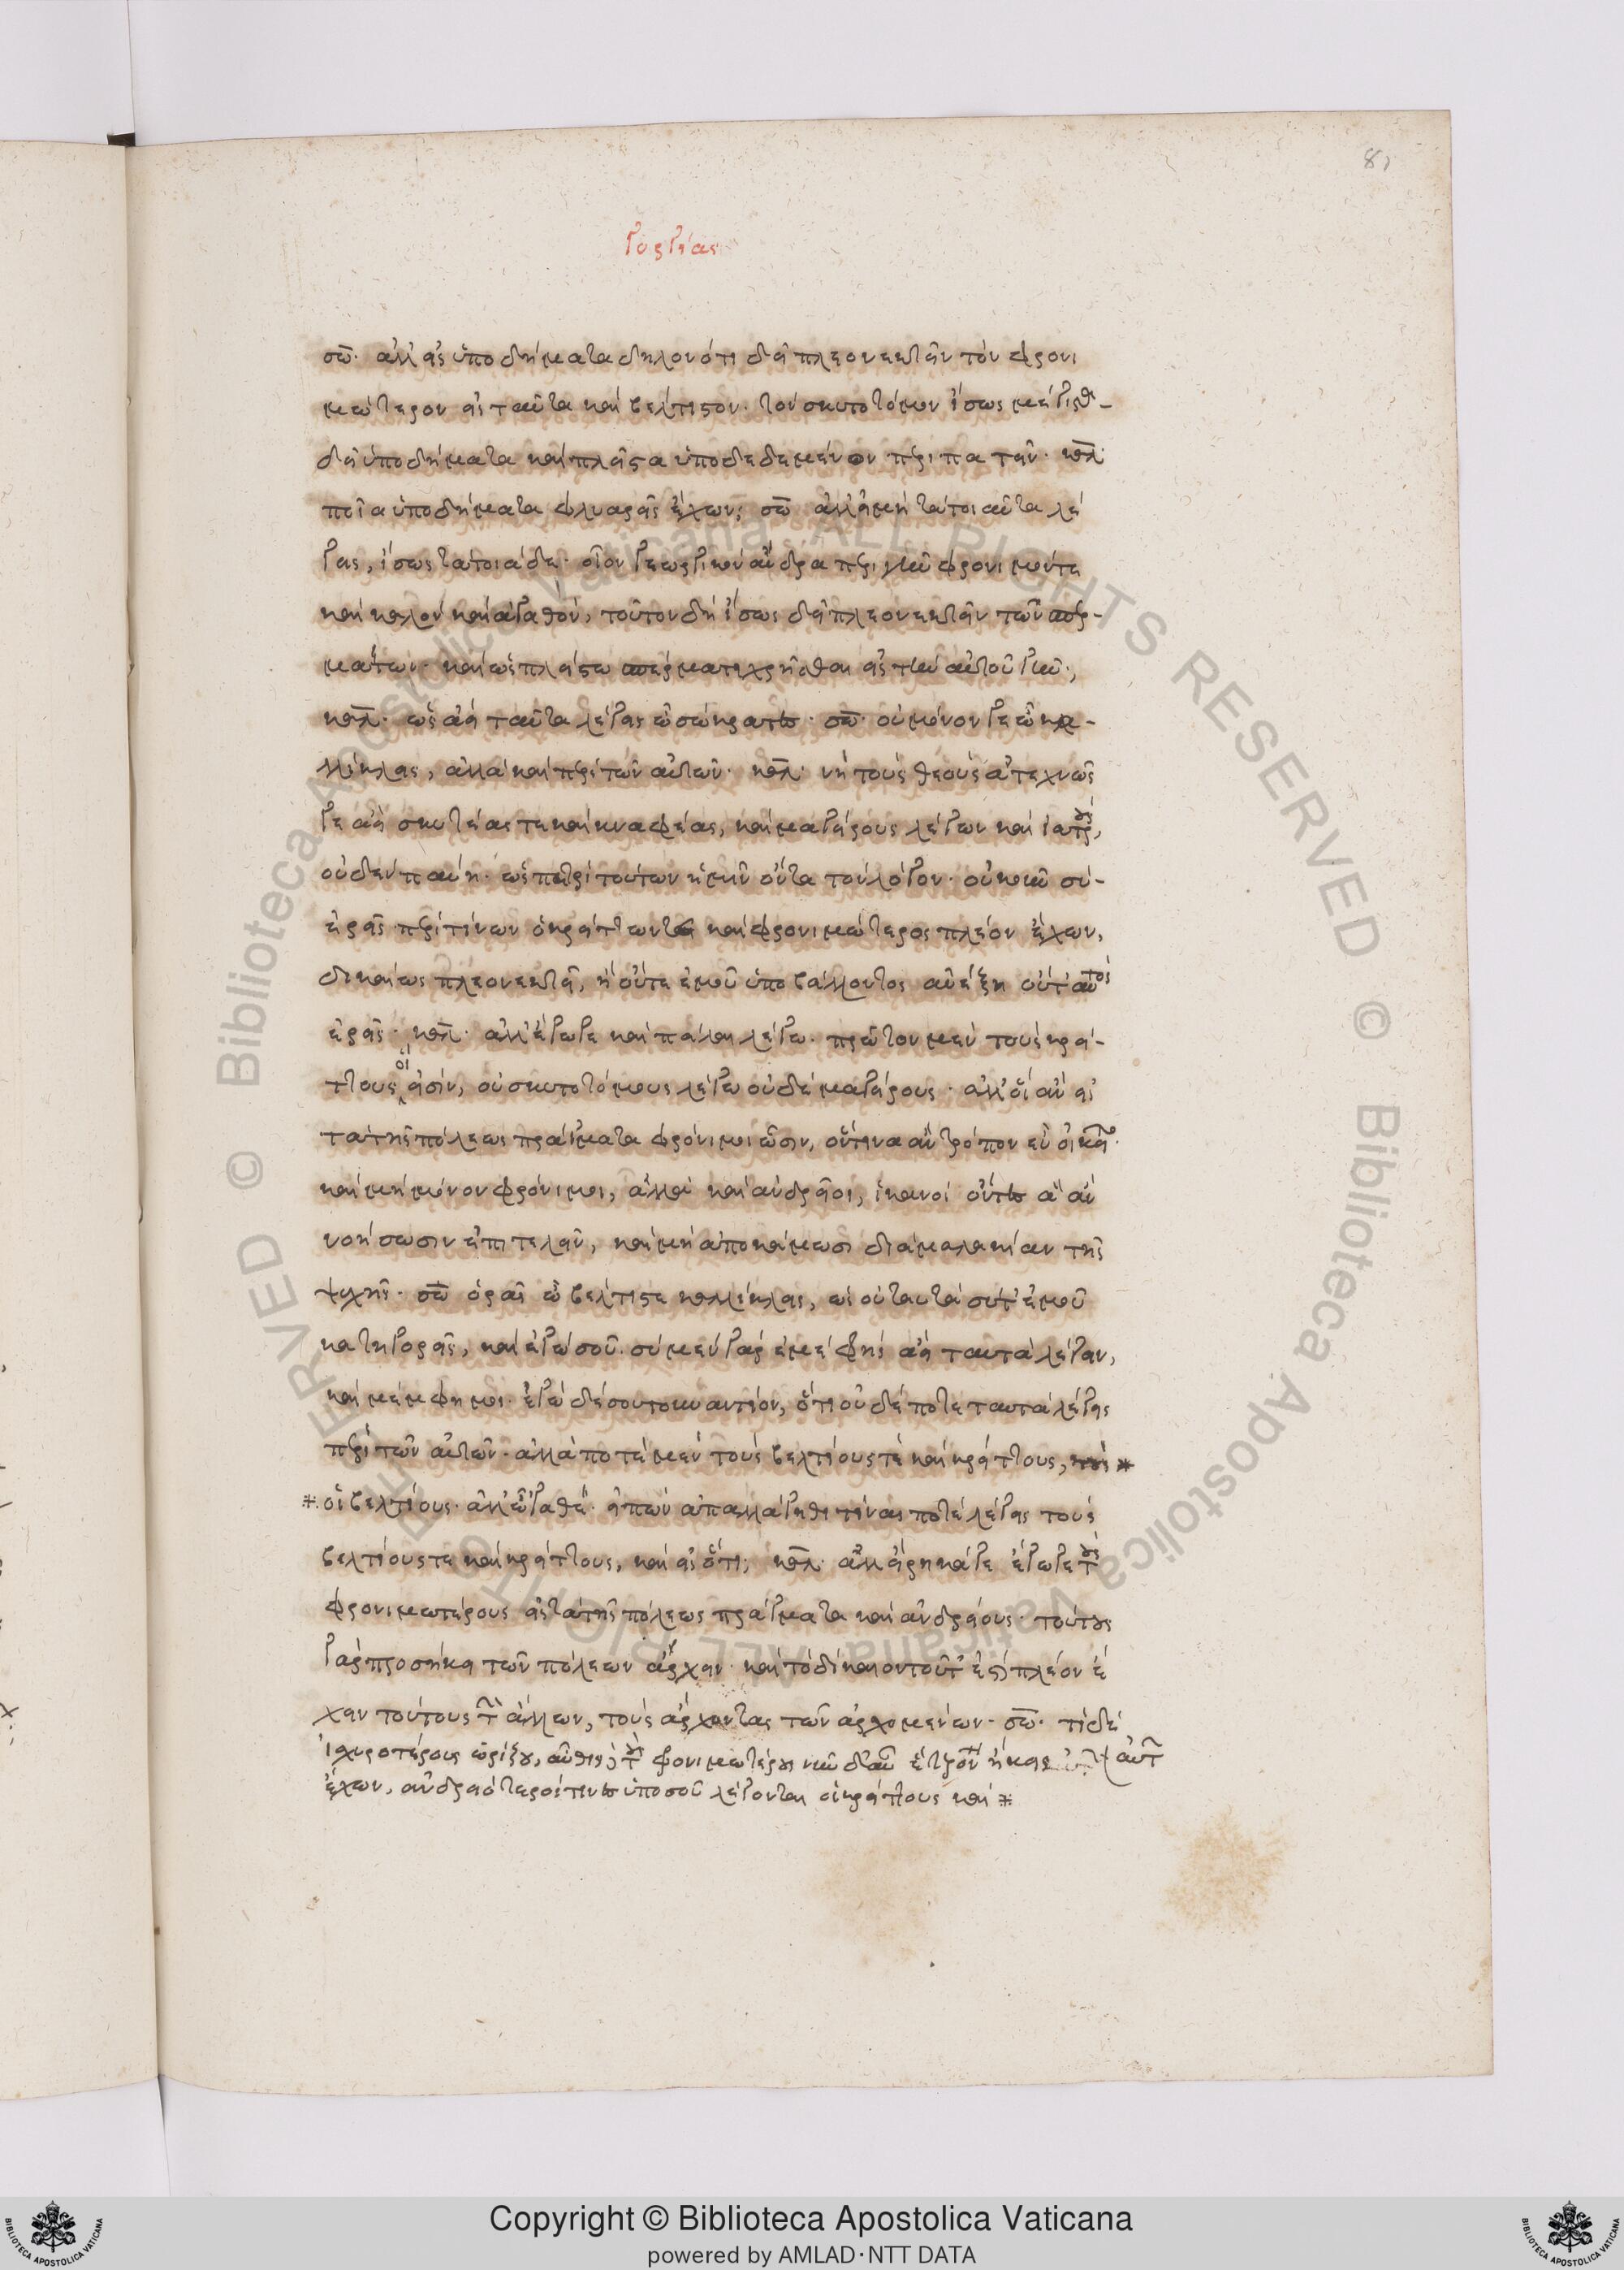 81
Γοργίας
σω. ἀλλ' εἰς ὑποδήματα δηλονότι δεῖ πλεονεκτεῖν τὸν φρονι
μώτερον εἰς ταῦτα καὶ βέλτιστον. τὸν σκυτοτόμον ἴσως μέγιστα
δεῖ ὑποδήματα καὶ πλεῖστα ὑποδεδεμένον περιπατεῖν. καλ.
ποῖα ὑποδήματα φλυαρεῖς ἔχων; σω. ἀλλ' εἰ μὴ τὰ τοιαῦτα λέ
γεις, ἴσως τὰ τοιάδε. οἷον γεωργικὸν ἄνδρα περὶ γῆν φρόνιμόν τε
καὶ καλὸν καὶ ἀγαθόν, τοῦτον δὴ ἴσως δεῖ πλεονεκτεῖν τῶν σπερ-
μάτων. καὶ ὡς πλείστῳ σπέρματι χρῆσθαι εἰς τὴν αὑτοῦ γῆν;
καλ. ὡς ἀεὶ ταῦτα λέγεις ὦ σώκρατες. σω. οὐ μόνον γε ὦ καλ-
λίκλεις, ἀλλὰ καὶ περὶ τῶν αὐτῶν. καλ. νὴ τοὺς θεοὺς ἀτεχνῶς
γε ἀεὶ σκυτέας τε καὶ κναφέας, καὶ μαγείρους λέγων καὶ ἰατρούς,
οὐδὲν παύῃ. ὡς περὶ τούτων ἡμῖν ὄντα τὸν λόγον. οὐκοῦν σὺ
ἐρεῖς περὶ τίνων ὁ κρείττων τε καὶ φρονιμώτερος πλέον ἔχων,
δικαίως πλεονεκτεῖ, ἢ οὔτε ἐμοῦ ὑποβάλλοντος ἀνέξῃ οὔτ' αὐτὸς
ἐρεῖς. καλ. ἀλλ' ἔγωγε καὶ πάλαι λέγω. πρῶτον μὲν τοὺς κρεί-
ττους οἵ εἰσιν, οὐ σκυτοτόμους λέγω οὐδὲ μαγείρους. ἀλλ' οἳ ἂν εἰς
τὰ τῆς πόλεως πράγματα φρόνιμοι ὦσιν, ὅντινα ἂν τρόπον εὖ οἰκοῖτο.
καὶ μὴ μόνον φρόνιμοι, ἀλλὰ καὶ ἀνδρεῖοι, ἱκανοὶ ὄντες ἃ ἂν
νοήσωσιν ἐπιτελεῖν, καὶ μὴ ἀποκάμωσι διὰ μαλακίαν τῆς
ψυχῆς. σω ὁρᾷς ὦ βέλτιστε καλλίκλεις, ὡς οὐ ταυτὰ σύ τ' ἐμοῦ
κατηγορεῖς, καὶ ἐγὼ σοῦ. σὺ μὲν γὰρ ἐμὲ φῂς ἀεὶ ταυτὰ λέγειν,
καὶ μέμφῃ μοι. ἐγὼ δὲ σοῦ τοὐναντίον, ὅτι οὐδέποτε ταυτὰ λέγεις
περὶ τῶν αὐτῶν. ἀλλὰ ποτὲ μὲν τοὺς βελτίους τε καὶ κρείττους,
οἱ βελτίους. ἀλλ' ὠγαθέ. εἰπὼν ἀπαλλάγηθι τίνας ποτὲ λέγεις τοὺς
βελτίους τε καὶ κρείττους, καὶ εἰς ὅτι; καλ. ἀλλ' εἴρηκά γε ἔγωγε τοὺς
φρονιμωτέρους εἰς τὰ τῆς πόλεως πράγματα καὶ ἀνδρείους. τούτους
γὰρ προσήκει τῶν πόλεων ἄρχειν. καὶ τὸ δίκαιον τοῦτ' ἐστὶ πλέον ἔ
χειν τούτους τῶν ἄλλων, τοὺς ἄρχοντας τῶν ἀρχομένων. σω. τί δὲ
ἰσχυροτέρους ὡρίζου, αὖθις δὲ τοὺς φρονιμωτέρους νῦν δ' αὖ ἕτερόν τι ἥκεις αὐτῶν
ἔχων, ἀνδρειότεροί τινες ὑπὸ σοῦ λέγονται οἱ κρείττους καὶ